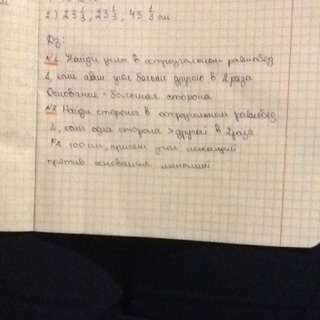 2) 23 1/3, 23 1/3, 43 1/3 см
Дз:
№1 Найди углы в остроугольном равнобед
∆, если один угол больше другого в 2 раза
Основание - большая сторона
№2 Найди стороны в остроугольном равнобед
∆, если одна сторона > другой в 2 раза
P= 100 см, причем угол лежащий
против основания меньший